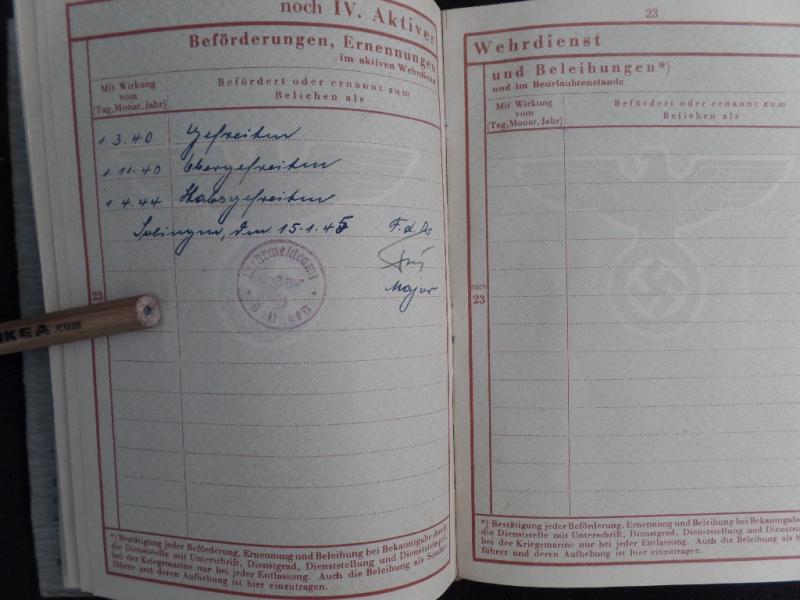 noch IV. Aktiver
Beförderungen, Ernennungen
im aktiven Wehrdiens
Mit Wirkung
vom
(Tag, Monat, Jahr)
Befördert oder ernannt zum
Beliehen als
1.3.40 Gefreiten
1.11.40 Obergefreiten
1.4.44 Stabsgefreiten
Solingen, den 15.1.45 F.d.
Major
Wehrmeldeamt
Solingen
23
IKEA.com
*) Bestätigung jeder Beförderung, Ernennung und Beleihung bei Bekanntgabe durch
die Dienststelle mit Unterschrift, Dienstgrad, Dienststellung und Dienststempel,
bei der Kriegsmarine nur bei jeder Entlassung. Auch die Beleihung als Sonder-
führer und deren Aufhebung ist hier einzutragen.
23
Wehrdienst
und Beleihungen*)
und im Beurlaubtenstande
Mit Wirkung
vom
(Tag, Monat, Jahr)
Befördert oder ernannt zum
Beliehen als
noch
23
*) Bestätigung jeder Beförderung, Ernennung und Beleihung bei Bekanntgabe
die Dienststelle mit Unterschrift, Dienstgrad, Dienststellung und Dienststemp
bei der Kriegsmarine nur bei jeder Entlassung. Auch die Beleihung als Son
führer und deren Aufhebung ist hier einzutragen.